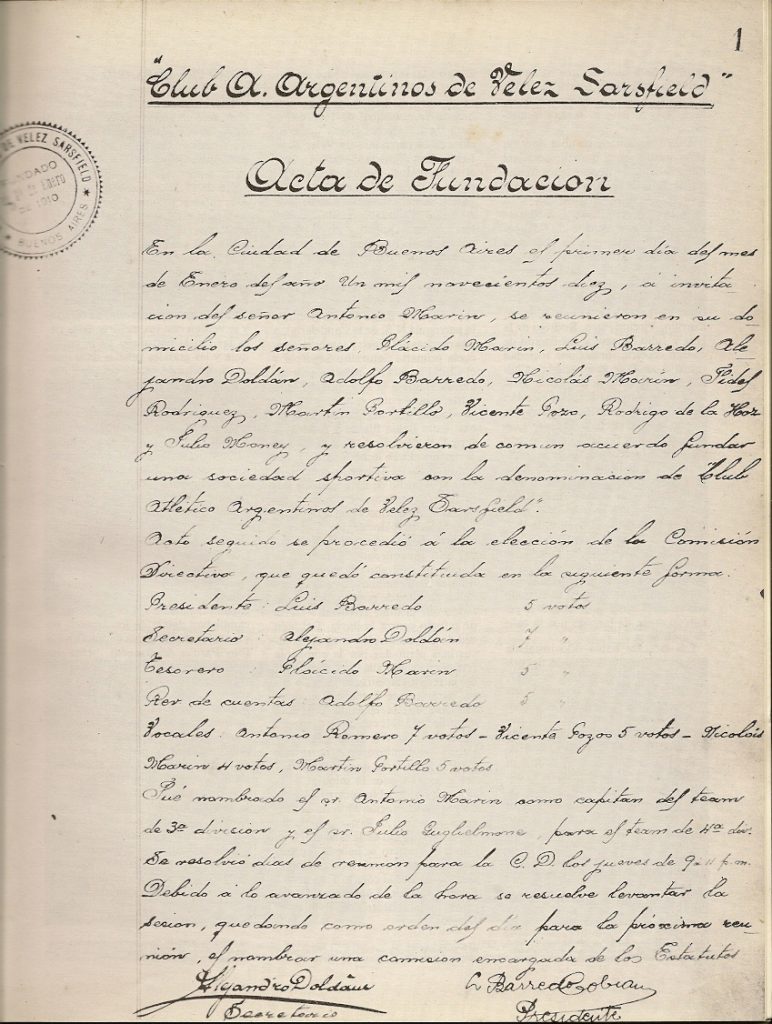 1
"Club A. Argentinos de Velez Sarsfield"
DE VELEZ SARSFIELD
FUNDADO
ENERO
DE 1910
BUENOS AIRES
Acta de Fundacion
En la Ciudad de Buenos Aires el primer día del mes
de Enero del año Un mil novecientos diez, á invita
cion del señor Antonio Marin, se reunieron en su do
micilio los señores Plácido Marin, Luis Barredo, Ale
jandro Doldán, Adolfo Barredo, Nicolás Marín, Fidel
Rodriguez, Martin Portillo, Vicente Pozo, Rodrigo de la Hoz
y Julio Money, y resolvieron de comun acuerdo fundar
una sociedad sportiva con la denominacion de Club
Atlético Argentinos de Velez Sarsfield".
Acto seguido se procedió á la elección de la Comisión
Directiva, que quedó constituida en la siguiente forma:
Presidente: Luis Barredo 5 votos
Secretario: Alejandro Doldán 7 "
Tesorero: Plácido Marin 5 "
Rev de cuentas: Adolfo Barredo 5 "
Vocales: Antonio Romero 7 votos - Vicente Pozos 5 votos - Nicolás
Marin 4 votos, Martin Portillo 5 votos
Fué nombrado el sr. Antonio Marin como capitan del team
de 3ª división y el sr. Julio Guglielmone, para el team de 4ª div.
Se resolvió dias de reunion para la C. D. los jueves de 9 á 11 p.m.
Debido á lo avanzado de la hora se resuelve levantar la
sesion, quedando como orden del dia para la próxima reu
nión, el nombrar una comision encargada de los Estatutos
Alejandro Doldán L Barredo Cobian
Secretario Presidente